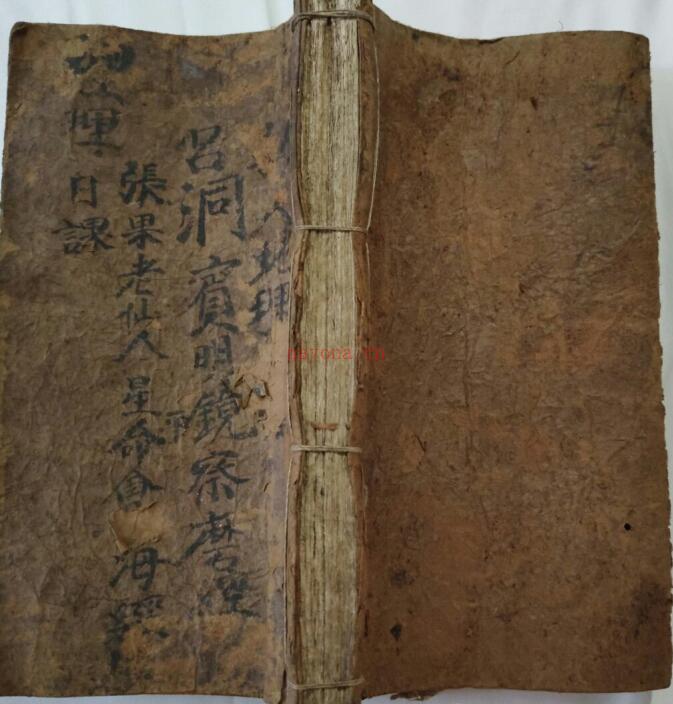 地理
呂洞賓明鏡察磨經
張果老仙人星命會海經
日課
nayona.cn